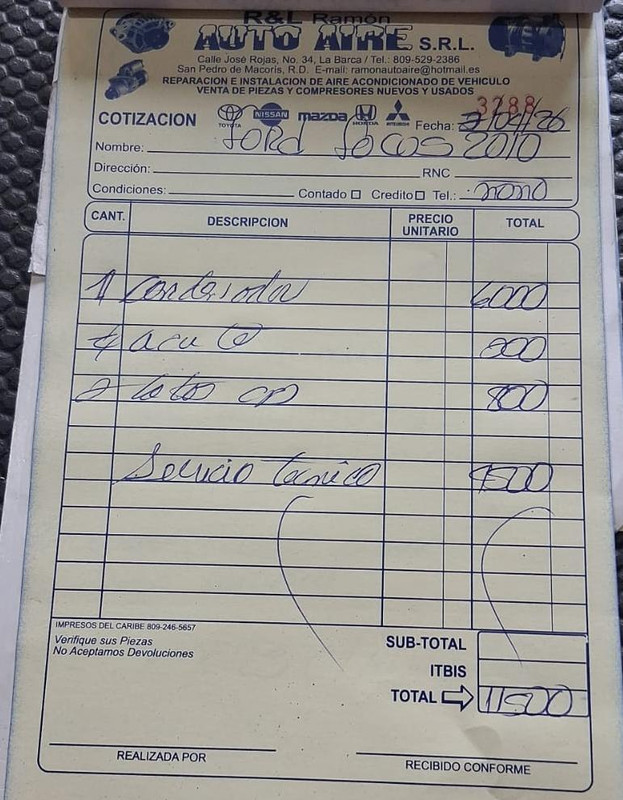 R&L Ramón
AUTO AIRE S.R.L.
Calle José Rojas, No. 34, La Barca / Tel.: 809-529-2386
San Pedro de Macorís, R.D. E-mail: ramonautoaire@hotmail.es
REPARACION E INSTALACION DE AIRE ACONDICIONADO DE VEHICULO
VENTA DE PIEZAS Y COMPRESORES NUEVOS Y USADOS
3788
COTIZACION TOYOTA NISSAN mazda HONDA MITSUBISHI Fecha: /04/26
Nombre: Ford focus 2010
Dirección: RNC
Condiciones: Contado Credito Tel.:
CANT. DESCRIPCION PRECIO UNITARIO TOTAL
1 condensador 6000
4
2
Servicio tecnico
IMPRESOS DEL CARIBE 809-246-5657
Verifique sus Piezas
No Aceptamos Devoluciones
SUB-TOTAL
ITBIS
TOTAL 11500
REALIZADA POR RECIBIDO CONFORME